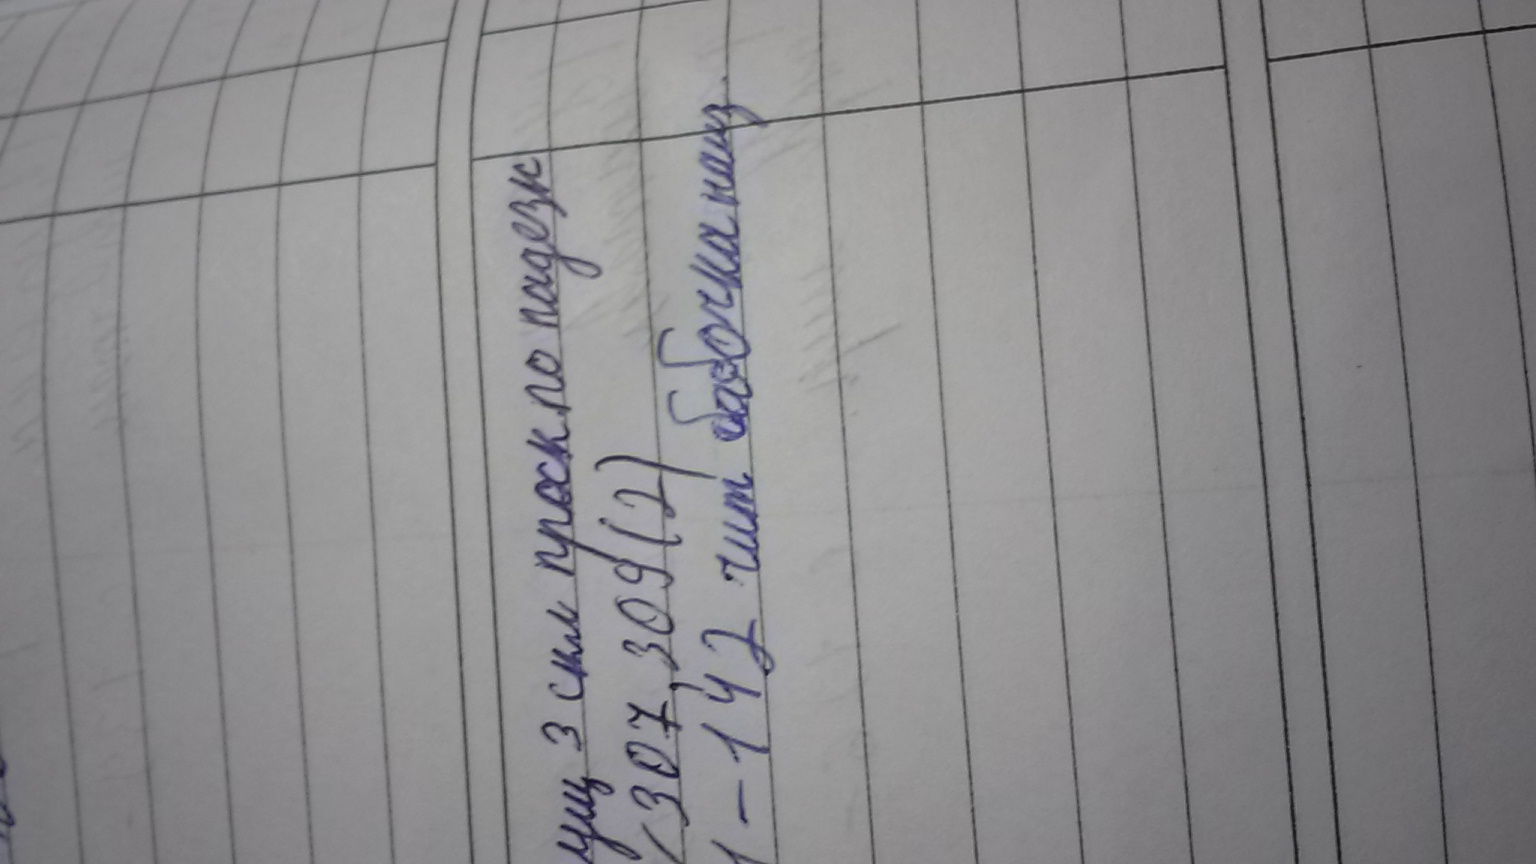 сущ 3 скл проск по падезк
307, 309 (2)
1 - 142 чит бабочка наиз.